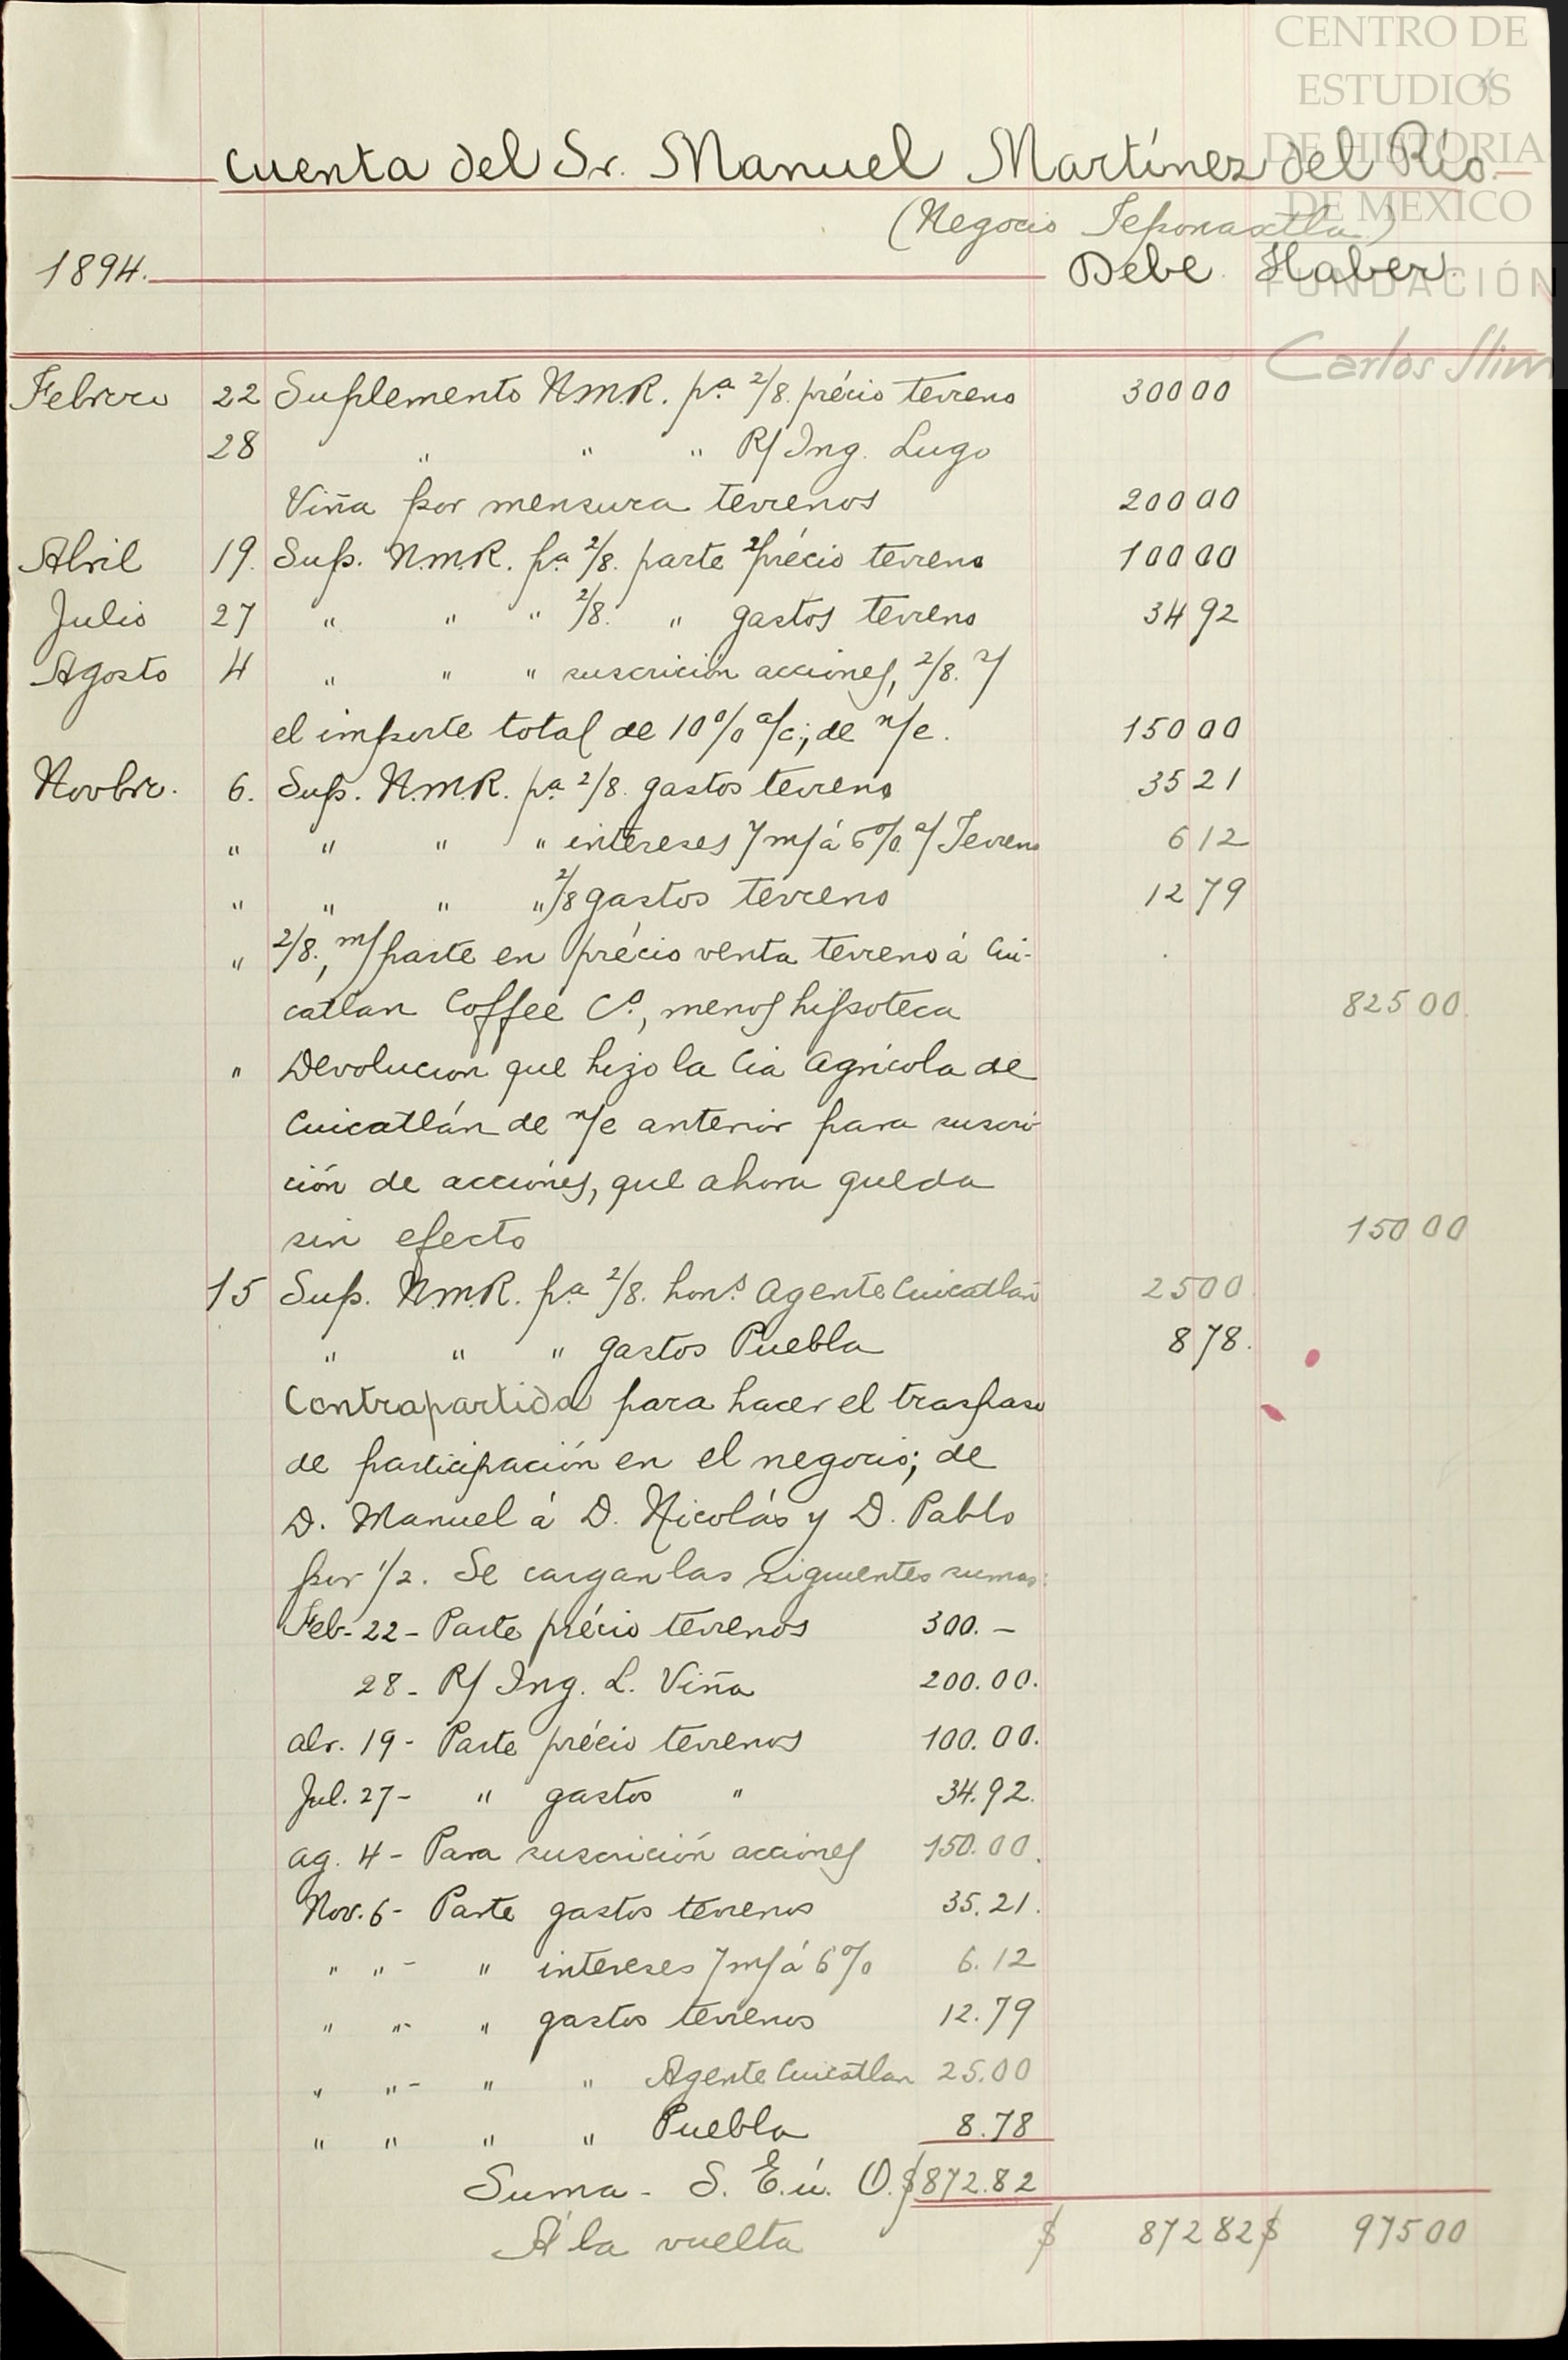 CENTRO DE
ESTUDIOS
DE HISTORIA
DE MEXICO
FUNDACIÓN
Carlos Slim
Cuenta del Sr. Manuel Martínez del Río.
(Negocio Teponaxtla)
1894. Debe Haber.
Febrero 22 Suplemento N.M.R. pa. 2/8. précio terreno 300 00
28 " " " R/ Ing. Lugo
Viña por mensura terrenos 200 00
Abril 19. Sup. N.M.R. pa. 2/8. parte précio terreno 100 00
Julio 27 " " " 2/8. " gastos terreno 34 92
Agosto 4 " " " suscrición acciones, 2/8. s/
el importe total de 10% a/c; de n/e. 150 00
Novbre. 6. Sup. N.M.R. pa. 2/8. gastos terreno 35 21
" " " " intereses 7 m/ á 6% s/ Terreno 6 12
" " " " 2/8 gastos terreno 12 79
" 2/8., m/ parte en précio venta terreno á Cui-
catlan Coffee Co., menos hipoteca 825 00.
" Devolucion que hizo la Cia Agrícola de
Cuicatlán de n/e anterior para suscri-
ción de acciónes, que ahora queda
sin efecto 150 00
15 Sup. N.M.R. pa. 2/8. hons. Agente Cuicatlán 25 00.
" " " gastos Puebla 8 78.
Contrapartida para hacer el traspaso
de participación en el negocio; de
D. Manuel á D. Nicolás y D. Pablo
por 1/2. Se cargan las siguientes sumas:
Feb- 22 - Parte précio terrenos 300. —
28 - R/ Ing. L. Viña 200.00.
abr. 19 - Parte précio terrenos 100.00.
Jul. 27 - " gastos " 34.92.
ag. 4 - Para suscrición acciones 150.00.
Nov. 6 - Parte gastos terrenos 35.21.
" " - " intereses 7 m/ á 6% 6.12
" " - " gastos terrenos 12.79
" " - " " Agente Cuicatlan 25.00
" " " " Puebla 8.78
Suma - S. E. ú. O. $872.82
Á la vuelta $ 872 82 $ 975 00